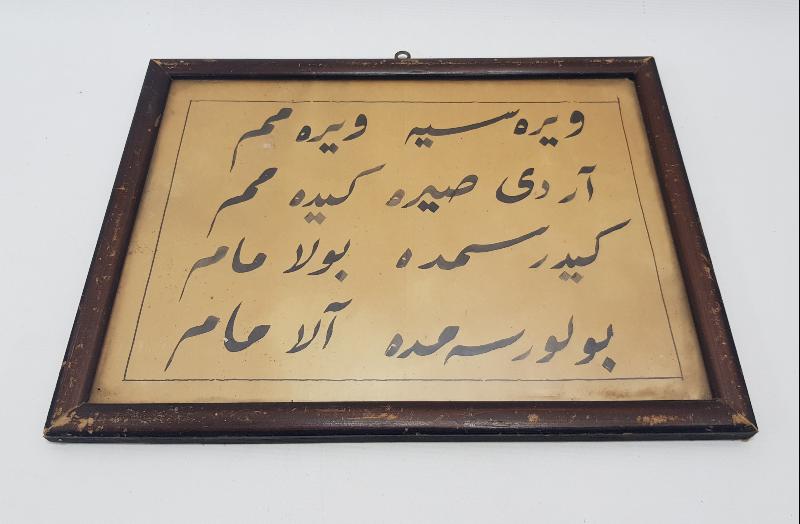 ویره سیه ویره مم
آردی صیره کیده مم
کیدرسمده بولا مام
بولورسه مده آلا مام